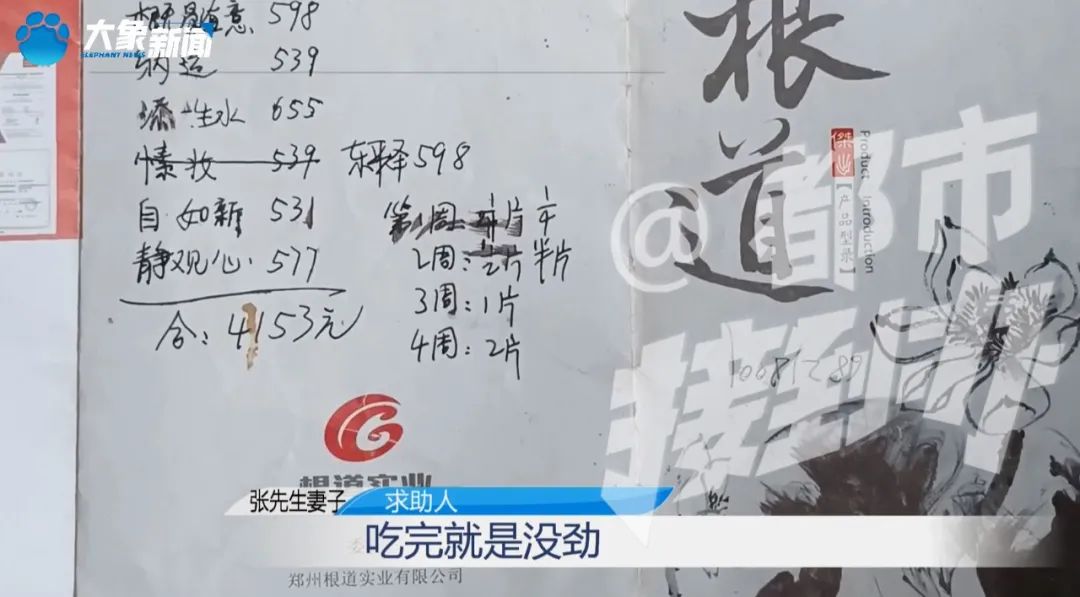 大象新闻
ELEPHANT NEWS
598
539
添 性水 655
539 东释 598
自如新 531
静观心 577
合：4153元
第1周 片 1/4
2周：1/2片 半片
3周：1片
4周：2片
根道
傑
Product Introduction
【产品型录】
@都市
报道
10081289
根道实业
张先生妻子 求助人
吃完就是没劲
郑州根道实业有限公司